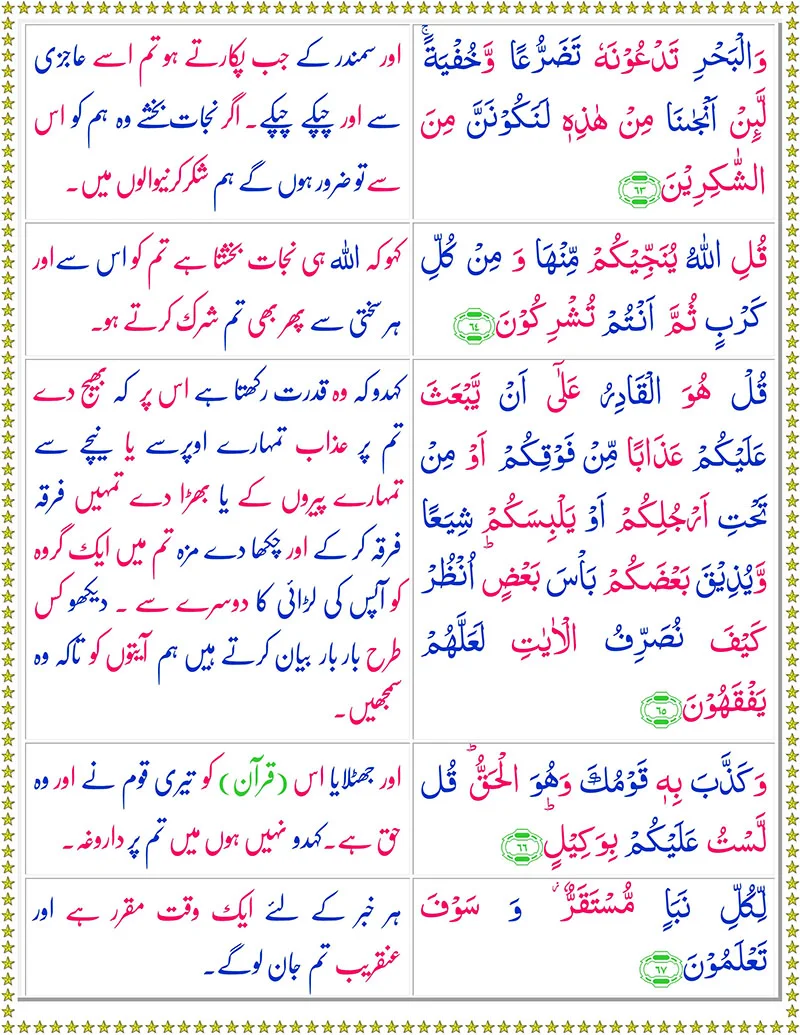 وَالْبَحْرِ تَدْعُوْنَهٗ تَضَرُّعًا وَّخُفْيَةً ۚ
لَّئِنْ اَنْجٰىنَا مِنْ هٰذِهٖ لَنَكُوْنَنَّ مِنَ
الشّٰكِرِيْنَ ﴿٦٣﴾
اور سمندر کے جب پکارتے ہو تم اسے عاجزی
سے اور چپکے چپکے۔ اگر نجات بخشے وہ ہم کو اس
سے تو ضرور ہوں گے ہم شکر کرنیوالوں میں۔
قُلِ اللّٰهُ يُنَجِّيْكُمْ مِّنْهَا وَ مِنْ كُلِّ
كَرْبٍ ثُمَّ اَنْتُمْ تُشْرِكُوْنَ ﴿٦٤﴾
کہو کہ اللہ ہی نجات بخشتا ہے تم کو اس سے اور
ہر سختی سے پھر بھی تم شرک کرتے ہو۔
قُلْ هُوَ الْقَادِرُ عَلٰٓى اَنْ يَّبْعَثَ
عَلَيْكُمْ عَذَابًا مِّنْ فَوْقِكُمْ اَوْ مِنْ
تَحْتِ اَرْجُلِكُمْ اَوْ يَلْبِسَكُمْ شِيَعًا
وَّيُذِيْقَ بَعْضَكُمْ بَاْسَ بَعْضٍ ؕ اُنْظُرْ
كَيْفَ نُصَرِّفُ الْاٰيٰتِ لَعَلَّهُمْ
يَفْقَهُوْنَ ﴿٦٥﴾
کہدو کہ وہ قدرت رکھتا ہے اس پر کہ بھیج دے
تم پر عذاب تمہارے اوپر سے یا نیچے سے
تمہارے پیروں کے یا بھڑا دے تمہیں فرقہ
فرقہ کر کے اور چکھا دے مزہ تم میں ایک گروہ
کو آپس کی لڑائی کا دوسرے سے ۔ دیکھو کس
طرح بار بار بیان کرتے ہیں ہم آیتوں کو تاکہ وہ
سمجھیں۔
وَكَذَّبَ بِهٖ قَوْمُكَ وَهُوَ الْحَقُّ ؕ قُل
لَّسْتُ عَلَيْكُمْ بِوَكِيْلٍ ؕ ﴿٦٦﴾
اور جھٹلایا اس (قرآن) کو تیری قوم نے اور وہ
حق ہے۔ کہدو نہیں ہوں میں تم پر داروغہ۔
لِّكُلِّ نَبَاٍ مُّسْتَقَرٌّ ۫ وَ سَوْفَ
تَعْلَمُوْنَ ﴿٦٧﴾
ہر خبر کے لئے ایک وقت مقرر ہے اور
عنقریب تم جان لو گے۔